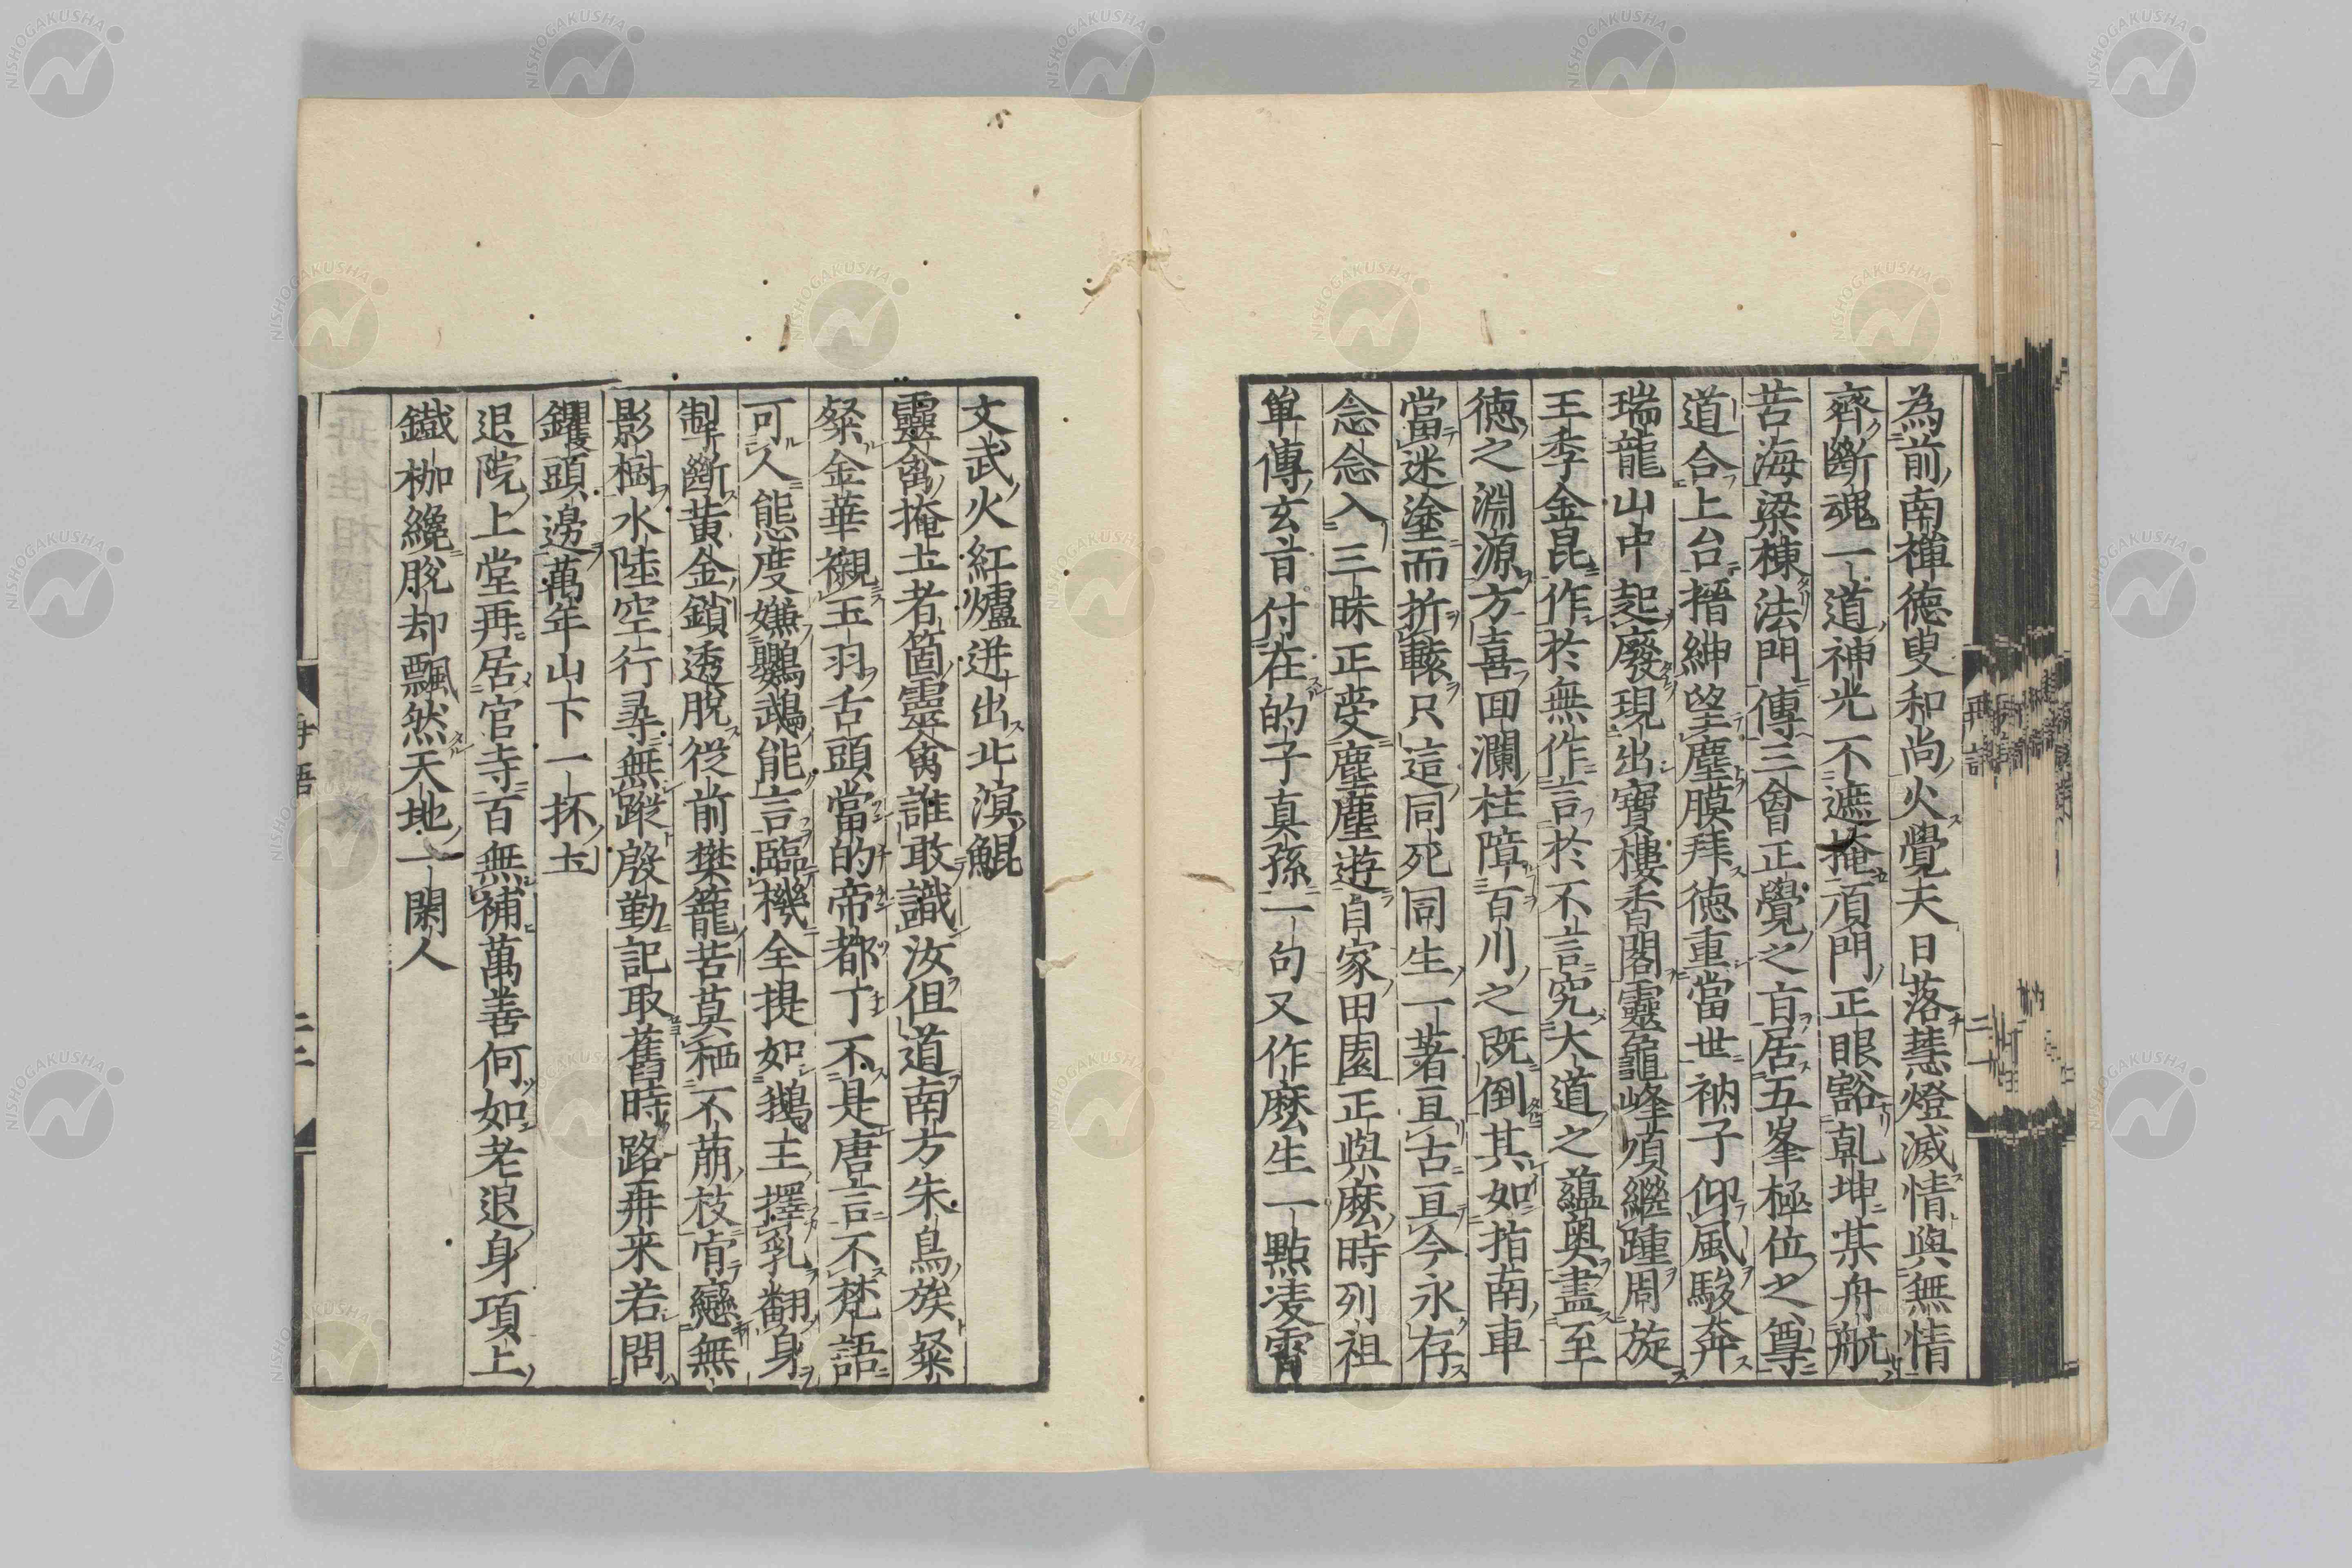 為前南禪德叟和尚火覺夫日落慧燈滅情與無情
齊斷魂一道神光不遮掩頂門正眼豁乾坤某舟航
苦海梁棟法門傳三會正覺之盲居五峯極位之尊
道合上台搢紳望塵膜拜德重當世衲子仰風駿奔
瑞龍山中起廢現出寶樓香閣靈龜峰頂繼踵周旋
王季金昆作於無作言於不言究大道之蘊奧盡至
德之淵源方喜回瀾柱障百川之既倒其如指南車
當迷塗而折轅只這同死同生一著亘古亘今永存
念念入三昧正受塵塵遊自家田園正與麼時列祖
單傳玄旨付在的子真孫一句又作麼生一點凌霄
文武火紅爐迸出北溟鯤
靈禽掩土者箇靈禽誰敢識汝但道南方朱鳥族粲
粲金華襯五羽舌頭當的帝都丁不是唐言不梵語
可人態度嫌鸚鵡能言臨機全提如鵝主擇乳翻身
掣斷黃金鎖透脫從前樊籠苦莫栖不萠枝宵戀無
影樹水陸空行尋無蹤慇勤記取舊時路再来若問
钁頭邊萬年山下一抔土
退院上堂再居官寺百無補萬善何如老退身項上
鐵枷纔脫却飄然天地一閑人
再語
二十二
再語
二十一
NISHOGAKUSHA